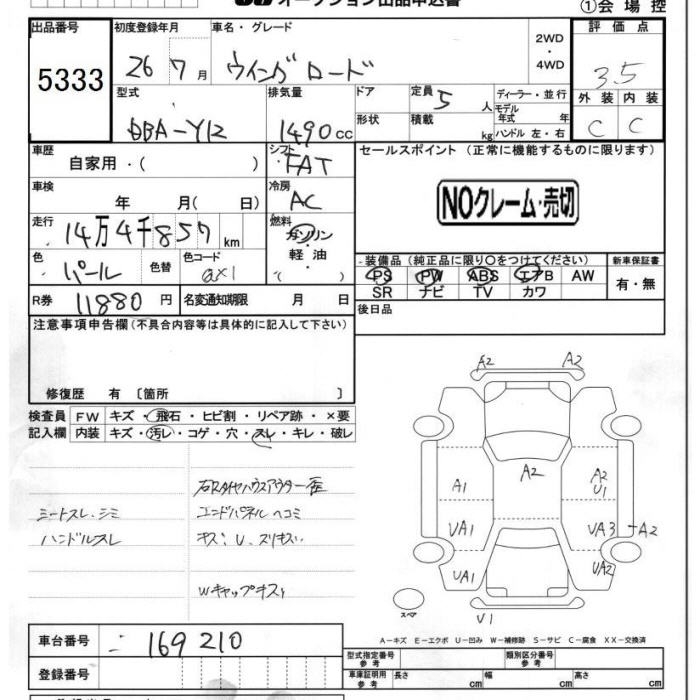 オークション出品申込書 ①会場控
出品番号 初度登録年月 車名・グレード 2WD・4WD 評価点
5333 26 7月 ウイングロード 3.5
型式 排気量 ドア 定員 5人 ディーラー・並行 外装 内装
DBA-Y12 1490cc 形状 積載 kg モデル年式 年 ハンドル 左・右 C C
車歴 自家用・( ) シフト FAT セールスポイント (正常に機能するものに限ります)
車検 年 月( 日) 冷房 AC NOクレーム・売切
走行 14万4千857km 燃料 ガソリン・軽油・( )
色 パール 色替 色コード ax1 装備品 (純正品に限り○をつけてください) 新車保証書
PS PW ABS エアB AW 有・無
SR ナビ TV カワ
R券 11880円 名変通知期限 月 日 後日品
注意事項申告欄 (不具合内容等は具体的に記入して下さい)
修復歴 有 〔箇所 〕
検査員 FW キズ・飛石・ヒビ割・リペア跡・×要
記入欄 内装 キズ・汚レ・コゲ・穴・スレ・キレ・破レ
右Rタイヤハウスアウター歪
シートスレ・シミ エンドパネルヘコミ
ハンドルスレ キズ:U、スリキズ
Wキャップキズ
A2 A2
A2
A1 A2 U1
UA1 UA3 A2
UA1 UA2
スペア U1
A-キズ E-エクボ U-凹み W-補修跡 S-サビ C-腐食 XX-交換済
車台番号 169210
型式指定番号 参考 類別区分番号 参考
登録番号 車庫証明用 参考 長さ cm 幅 cm 高さ cm